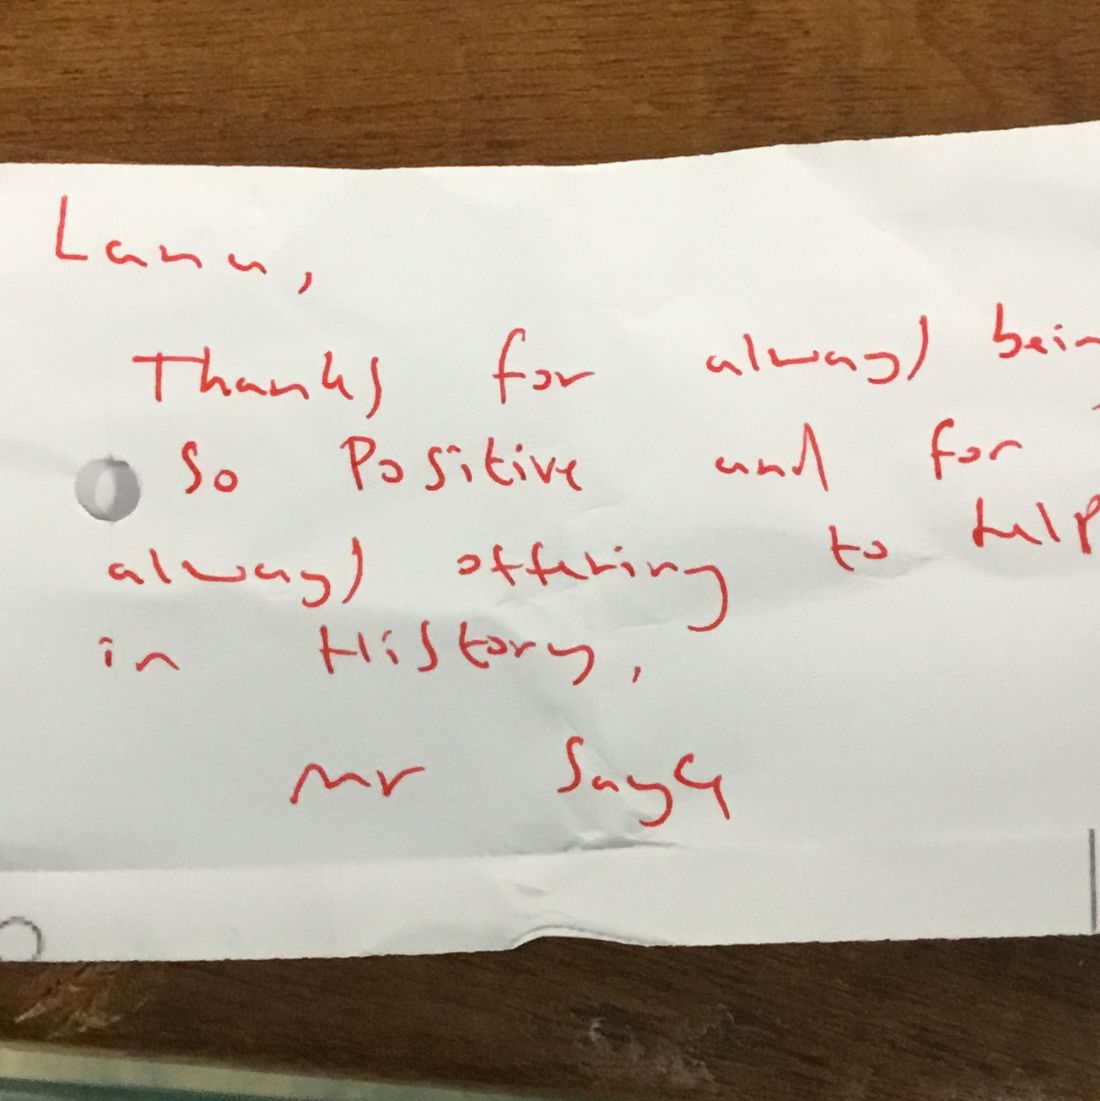 Lana,
Thanks for always bein
So Positive and for
always offering to help
in History,
Mr